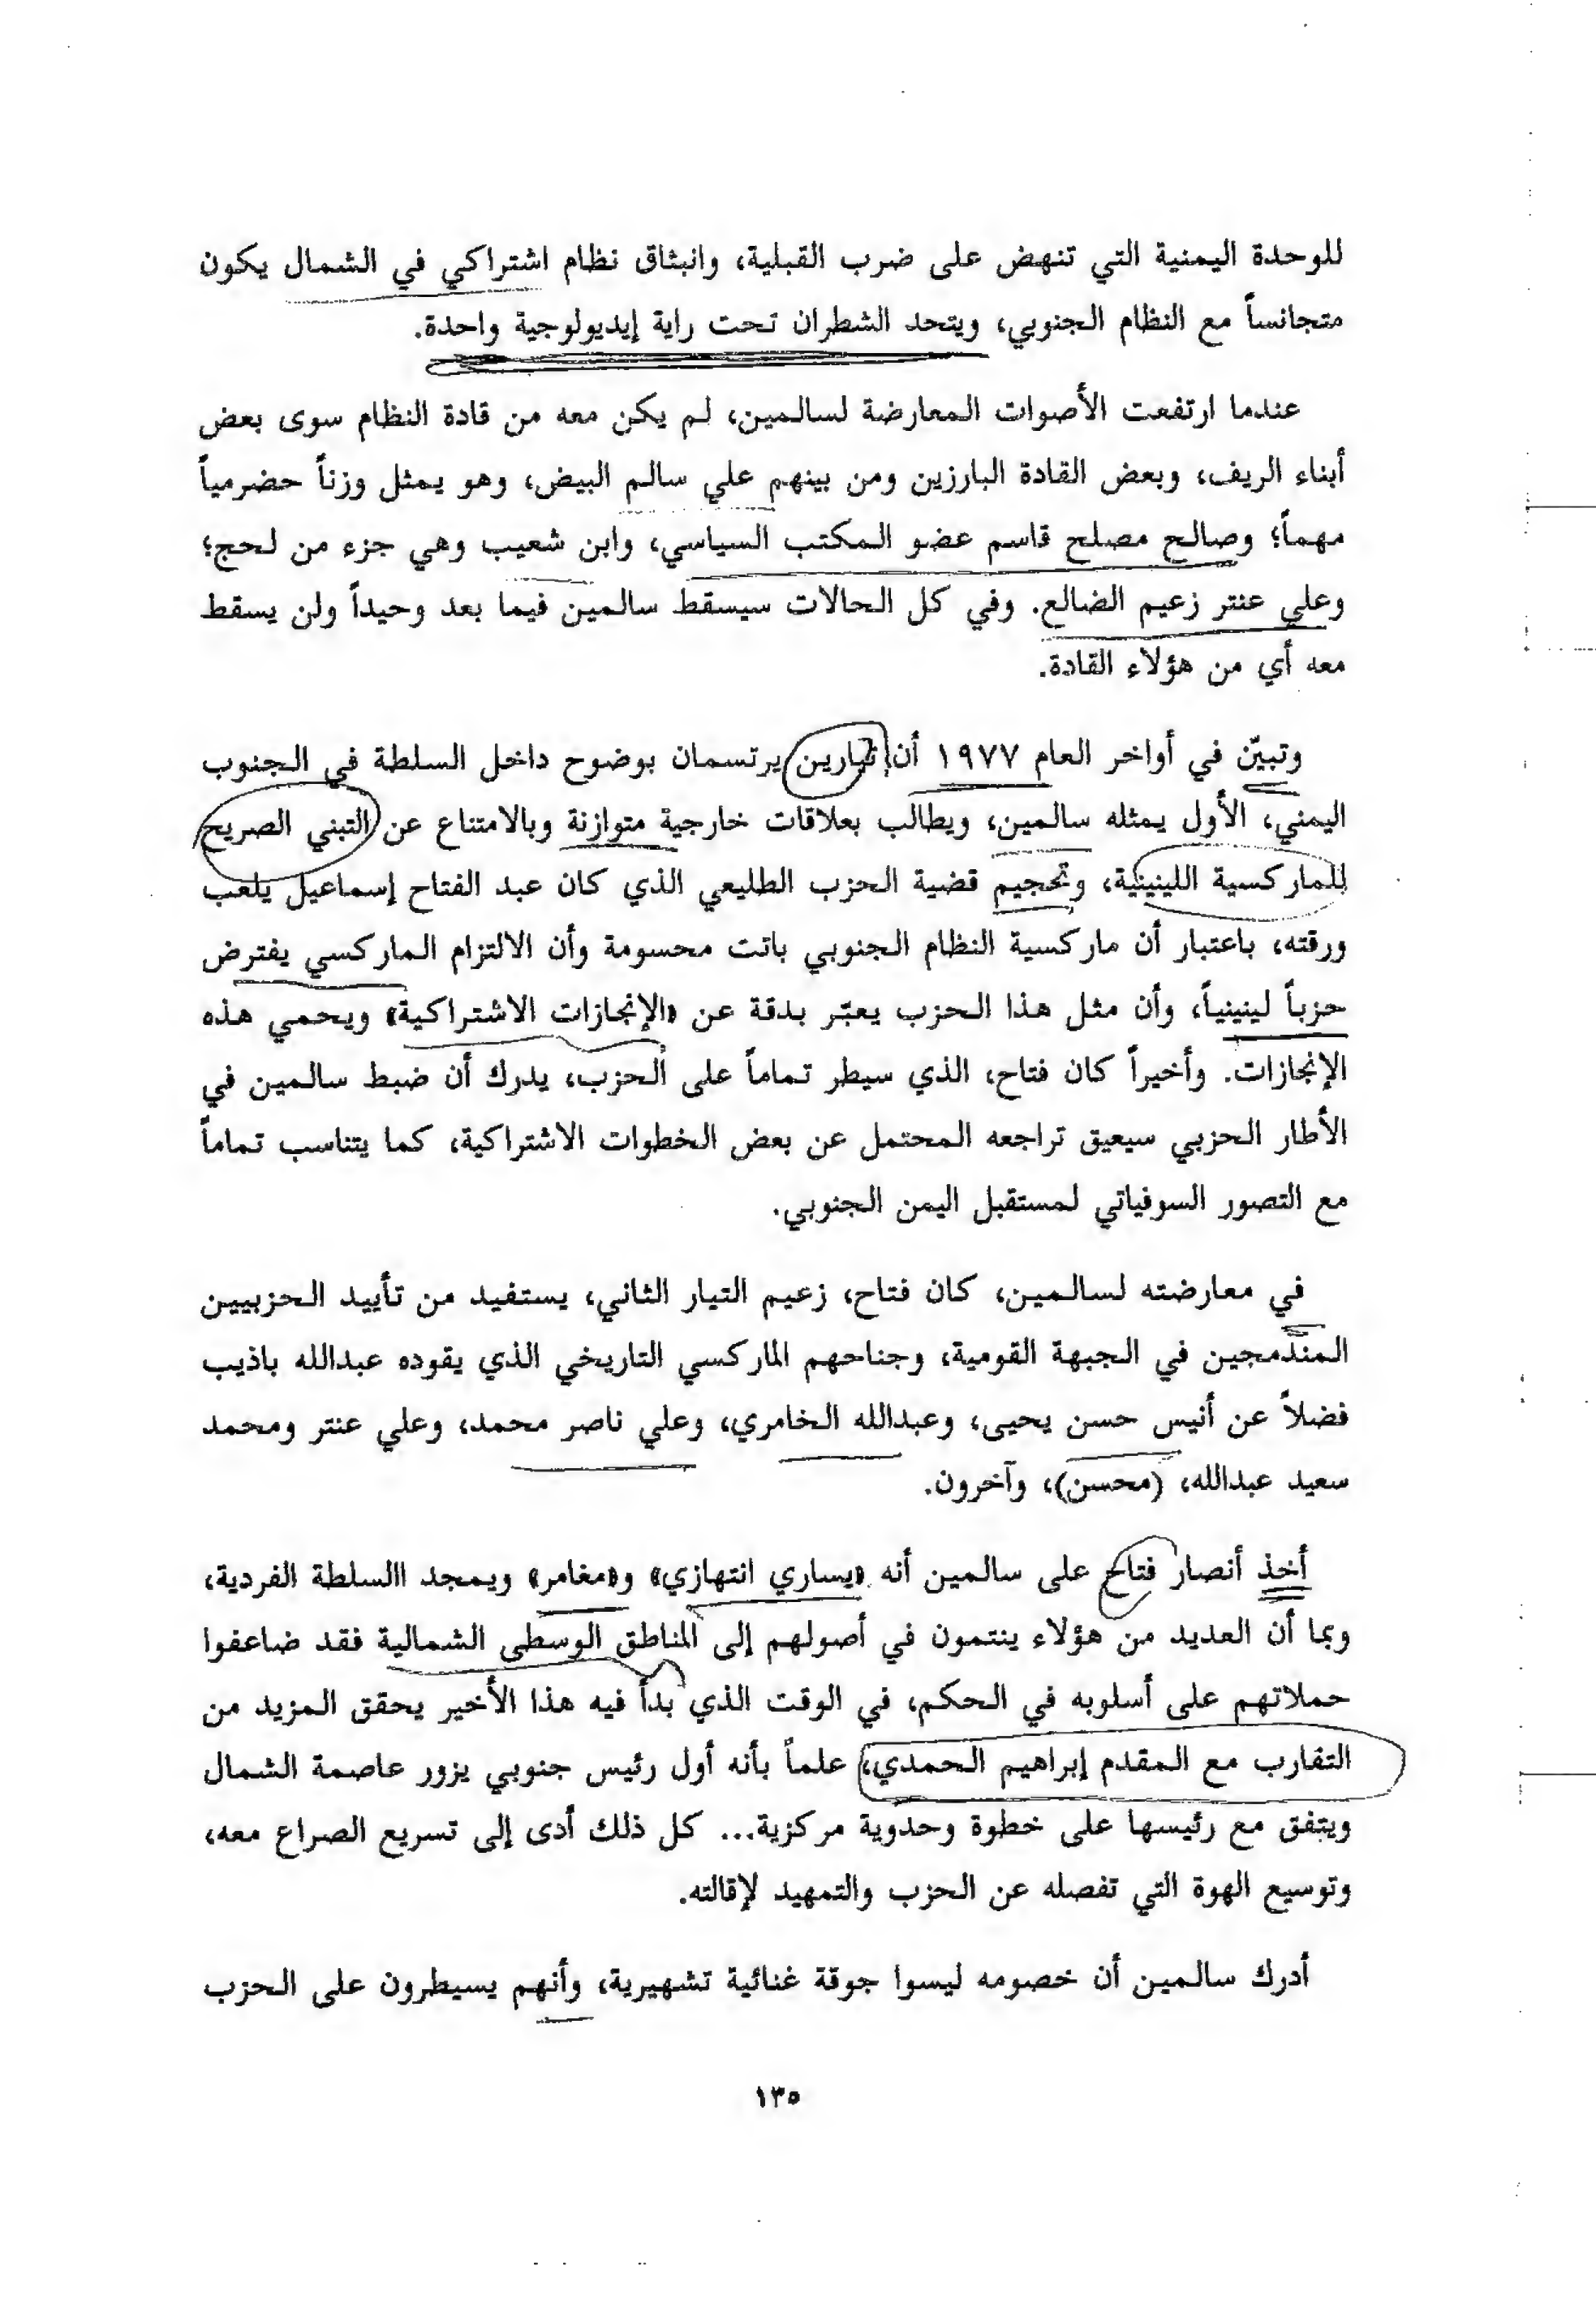 للوحدة اليمنية التي تنهض على ضرب القبلية، وانبثاق نظام اشتراكي في الشمال يكون
متجانساً مع النظام الجنوبي، ويتحد الشطران تحت راية إيديولوجية واحدة.
عندما ارتفعت الأصوات المعارضة لسالمين، لم يكن معه من قادة النظام سوى بعض
أبناء الريف، وبعض القادة البارزين ومن بينهم علي سالم البيض، وهو يمثل وزناً حضرمياً
مهماً؛ وصالح مصلح قاسم عضو المكتب السياسي، وابن شعيب وهي جزء من لحج؛
وعلي عنتر زعيم الضالع. وفي كل الحالات سيسقط سالمين فيما بعد وحيداً ولن يسقط
معه أي من هؤلاء القادة.
وتبيّن في أواخر العام ١٩٧٧ أن تيارين يرتسمان بوضوح داخل السلطة في الجنوب
اليمني، الأول يمثله سالمين، ويطالب بعلاقات خارجية متوازنة وبالامتناع عن التبني الصريح
للماركسية اللينينية، وتحجيم قضية الحزب الطليعي الذي كان عبد الفتاح إسماعيل يلعب
ورقته، باعتبار أن ماركسية النظام الجنوبي باتت محسومة وأن الالتزام الماركسي يفترض
حزباً لينينياً، وأن مثل هذا الحزب يعبّر بدقة عن «الإنجازات الاشتراكية» ويحمي هذه
الإنجازات. وأخيراً كان فتاح، الذي سيطر تماماً على الحزب، يدرك أن ضبط سالمين في
الأطار الحزبي سيعيق تراجعه المحتمل عن بعض الخطوات الاشتراكية، كما يتناسب تماماً
مع التصور السوفياتي لمستقبل اليمن الجنوبي.
في معارضته لسالمين، كان فتاح، زعيم التيار الثاني، يستفيد من تأييد الحزبيين
المندمجين في الجبهة القومية، وجناحهم الماركسي التاريخي الذي يقوده عبدالله باذيب
فضلاً عن أنيس حسن يحيى، وعبدالله الخامري، وعلي ناصر محمد، وعلي عنتر ومحمد
سعيد عبدالله، (محسن)، وآخرون.
أخذ أنصار فتاح على سالمين أنه «يساري انتهازي» و«مغامر» ويمجد االسلطة الفردية،
وبما أن العديد من هؤلاء ينتمون في أصولهم إلى المناطق الوسطى الشمالية فقد ضاعفوا
حملاتهم على أسلوبه في الحكم، في الوقت الذي بدأ فيه هذا الأخير يحقق المزيد من
التقارب مع المقدم إبراهيم الحمدي، علماً بأنه أول رئيس جنوبي يزور عاصمة الشمال
ويتفق مع رئيسها على خطوة وحدوية مركزية... كل ذلك أدى إلى تسريع الصراع معه،
وتوسيع الهوة التي تفصله عن الحزب والتمهيد لإقالته.
أدرك سالمين أن خصومه ليسوا جوقة غنائية تشهيرية، وأنهم يسيطرون على الحزب
١٣٥